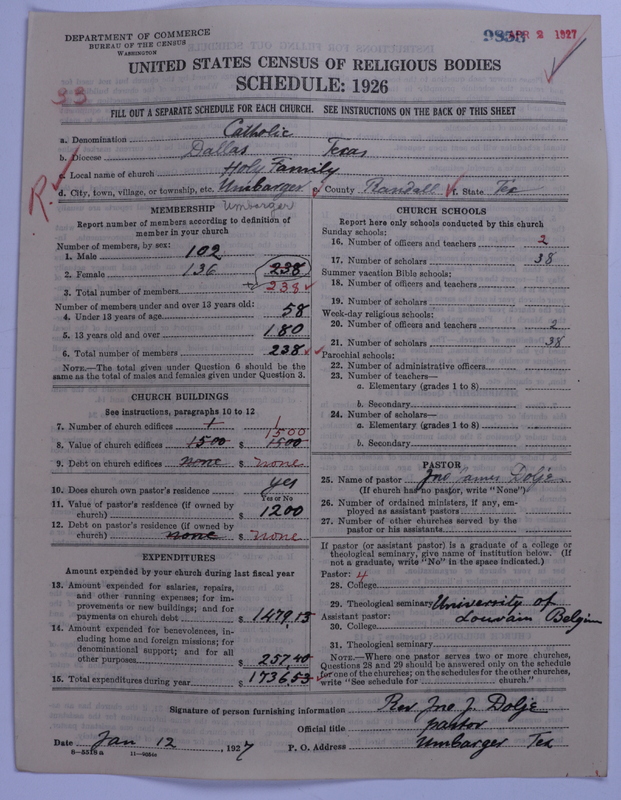 DEPARTMENT OF COMMERCE
BUREAU OF THE CENSUS
WASHINGTON
APR 2 1927
UNITED STATES CENSUS OF RELIGIOUS BODIES
SCHEDULE: 1926
33
FILL OUT A SEPARATE SCHEDULE FOR EACH CHURCH. SEE INSTRUCTIONS ON THE BACK OF THIS SHEET
a. Denomination Catholic
b. Diocese Dallas Texas
c. Local name of church Holy Family
d. City, town, village, or township, etc. Umbarger e. County Randall f. State Tex
R.
MEMBERSHIP Umbarger
Report number of members according to definition of
member in your church
Number of members, by sex:
1. Male 102
2. Female 136 238
3. Total number of members 238
Number of members under and over 13 years old:
4. Under 13 years of age 58
5. 13 years old and over 180
6. Total number of members 238
NOTE.—The total given under Question 6 should be
same as the total of males and females given under Question 3.
CHURCH BUILDINGS
See instructions, paragraphs 10 to 12
7. Number of church edifices 1 1
1500
8. Value of church edifices 1500 $ 1500
9. Debt on church edifices none $ none
10. Does church own pastor's residence yes
Yes or No
11. Value of pastor's residence (if owned by
church) $ 1200
12. Debt on pastor's residence (if owned by
church) none $ none
EXPENDITURES
Amount expended by your church during last fiscal year
13. Amount expended for salaries, repairs,
and other running expenses; for im-
provements or new buildings; and for
payments on church debt $ 1479,13
14. Amount expended for benevolences, in-
cluding home and foreign missions; for
denominational support; and for all
other purposes $ 257,40
15. Total expenditures during year $ 1736,53
CHURCH SCHOOLS
Report here only schools conducted by this church
Sunday schools:
16. Number of officers and teachers 2
17. Number of scholars 38
Summer vacation Bible schools:
18. Number of officers and teachers
19. Number of scholars
Week-day religious schools:
20. Number of officers and teachers 2
21. Number of scholars 38
Parochial schools:
22. Number of administrative officers
23. Number of teachers—
a. Elementary (grades 1 to 8)
b. Secondary
24. Number of scholars—
a. Elementary (grades 1 to 8)
b. Secondary
PASTOR
25. Name of pastor Jno James Dolje
(If church has no pastor, write "None")
26. Number of ordained ministers, if any, em-
ployed as assistant pastors
27. Number of other churches served by the
pastor or his assistants
If pastor (or assistant pastor) is a graduate of a college or
theological seminary, give name of institution below. (If
not a graduate, write "No" in the space indicated.)
Pastor: 4
28. College
29. Theological seminary University of
Assistant pastor: Louvain Belgium
30. College
31. Theological seminary
NOTE.—Where one pastor serves two or more churches,
Questions 28 and 29 should be answered only on the schedule
for one of the churches; on the schedules for the other churches,
write "See schedule for church."
Signature of person furnishing information Rev Jno J. Dolje
Official title pastor
Date Jan 12, 1927 P. O. Address Umbarger Tex
8—5518 a